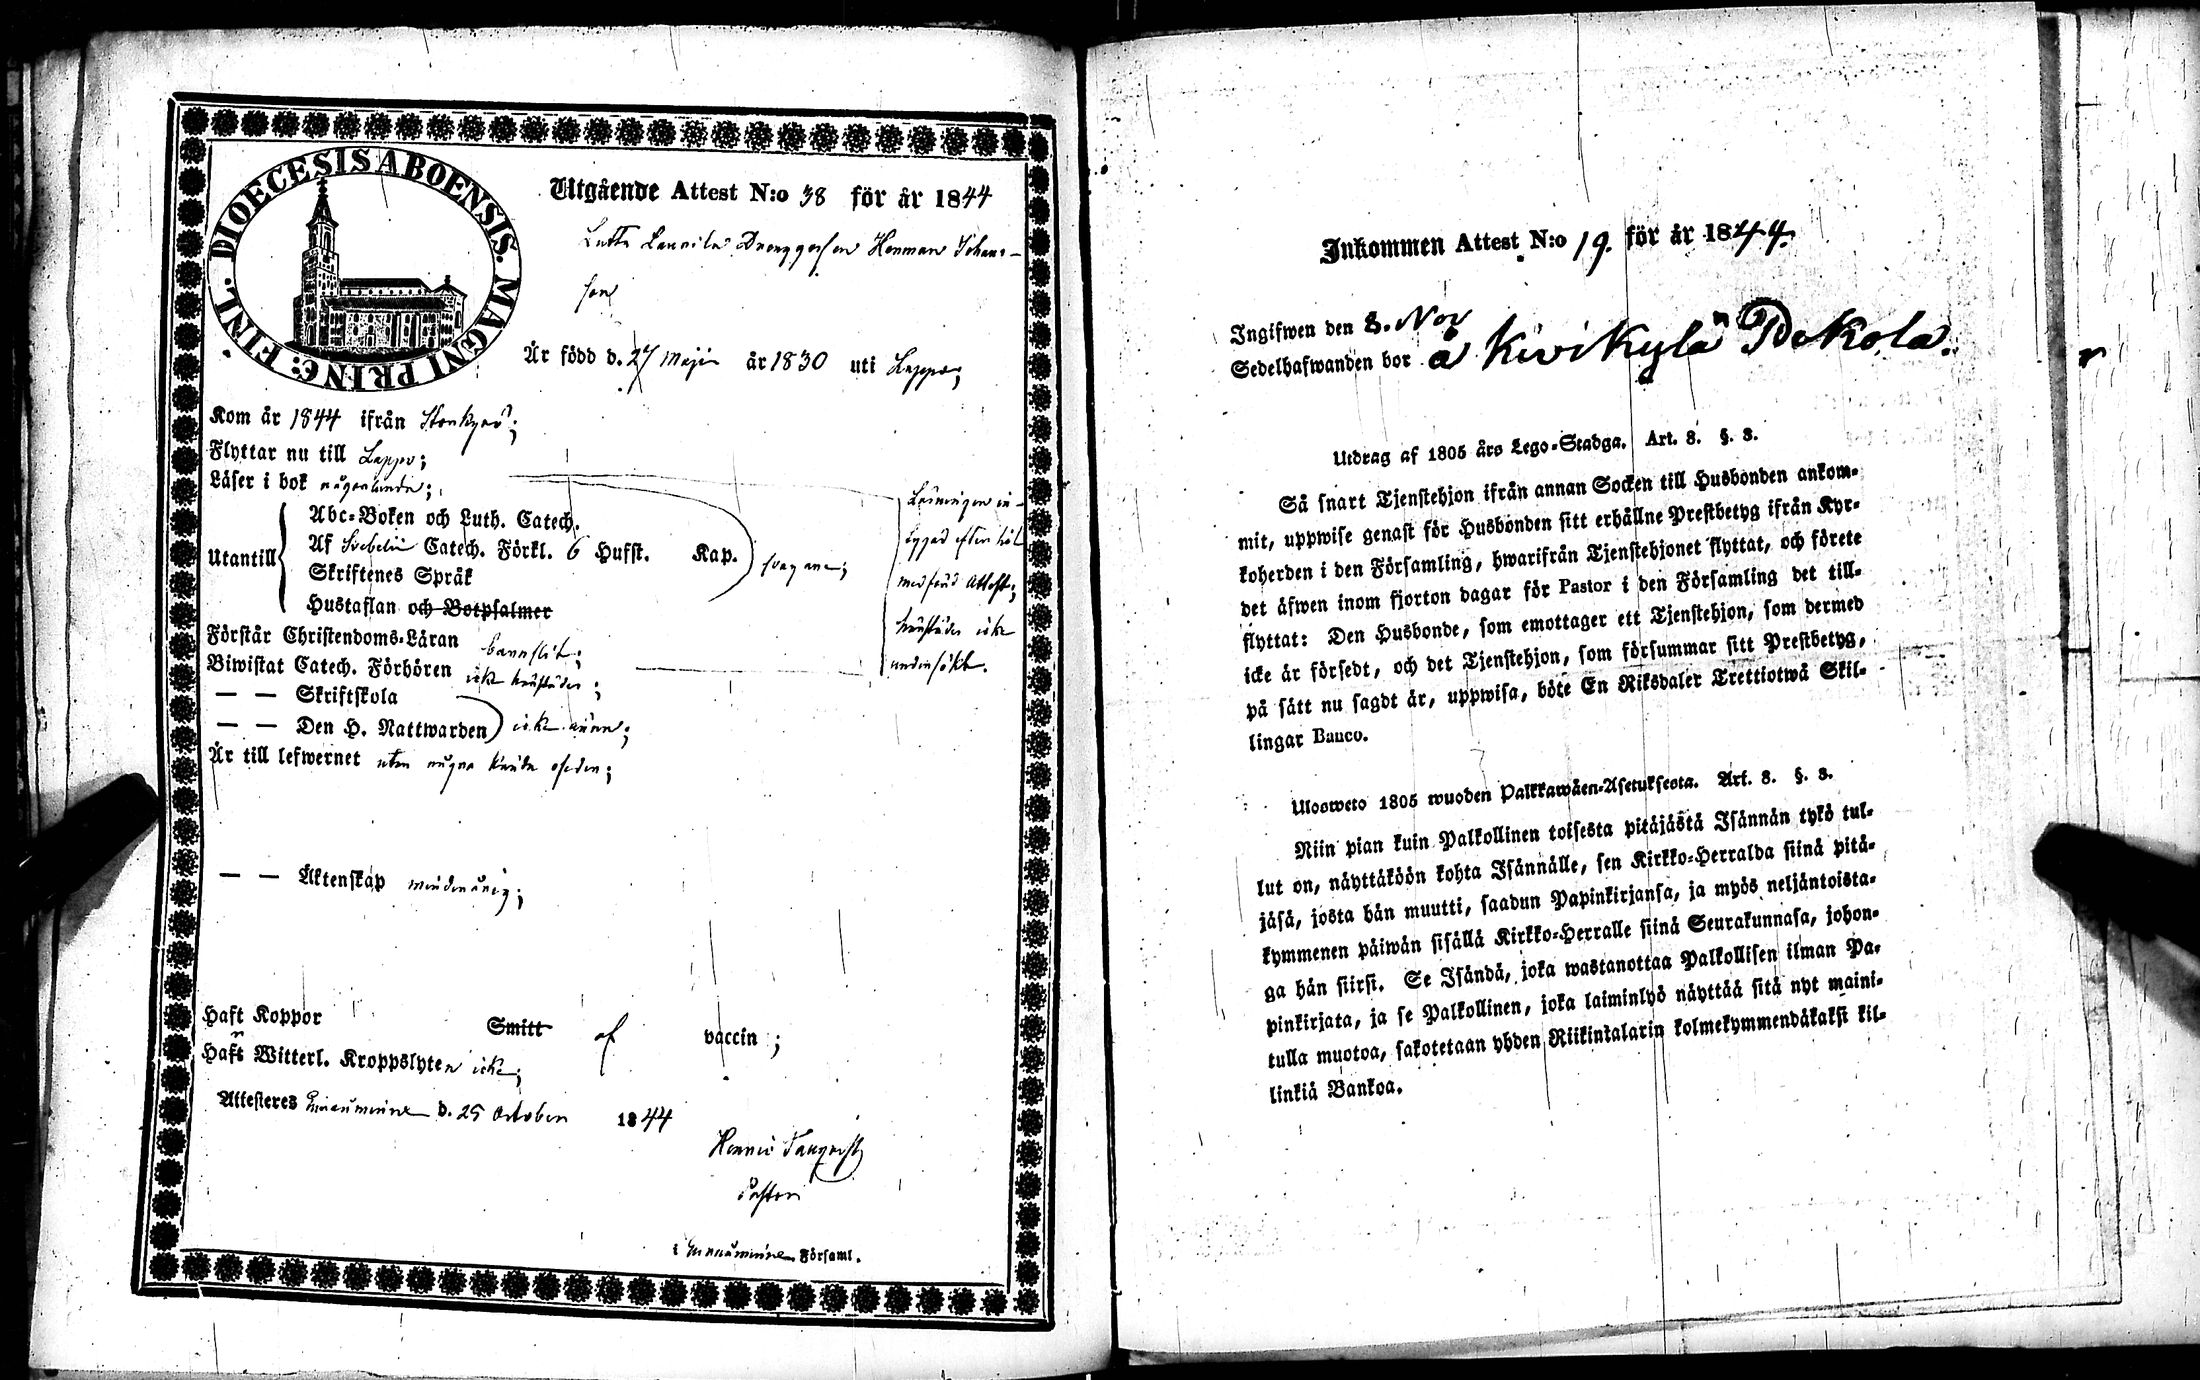 DIOECESIS ABOENSIS. MAGNI PRINC: FINL.
Utgående Attest N:o 38 för år 1844
Drenggossen Herman Johans-
son
Är född d. 27 Maji år 1830 uti Lappo;
Kom år 1844 ifrån Storkyro;
Flyttar nu till Lappo;
Läser i bok någorlunda;
Abc-Boken och Luth. Catech.
Utantill Af Svebelii Catech. Förkl. 6 Hufst. Kap. svagare;
Skriftenes Språk
Hustaflan och Botpsalmer
Läsningen in-
tygad efter hit
medförd Attest;
härstädes icke
undersökt.
Förstår Christendoms-Läran barnsligt;
Biwistat Catech. Förhören icke härstädes;
— — Skriftskola
— — Den H. Nattwarden icke ännu;
Är till lefwernet utan några kända oseder;
— — Äktenskap minderårig;
Haft Koppor Smitt af vaccin;
Haft Witterl. Kroppslyten icke;
Attesteres d. 25 October 1844
Pastor
i Församl.
Inkommen Attest N:o 19. för år 1844.
Ingifwen den 8. Nov
Sedelhafwanden bor å Kivikylä Pekola.
Utdrag af 1805 års Lego-Stadga. Art. 3. §. 3.
Så snart Tjenstehjon ifrån annan Socken till Husbonden ankom-
mit, uppwise genast för Husbonden sitt erhållne Prestbetyg ifrån Kyr-
koherden i den Församling, hwarifrån Tjenstehjonet flyttat, och förete
det äfwen inom fjorton dagar för Pastor i den Församling det till-
flyttat: Den Husbonde, som emottager ett Tjenstehjon, som dermed
icke är försedt, och det Tjenstehjon, som försummar sitt Prestbetyg,
på sätt nu sagdt är, uppwisa, böte En Riksdaler Trettiotwå Skil-
lingar Banco.
Uloswето 1805 wuoden Palkkawäen-Asetuksesta. Art. 3. §. 3.
Niin pian kuin Palkollinen toisesta pitäjästä Isännän tykö tul-
lut on, näyttäköön kohta Isännälle, sen Kirkko-Herralda siinä pitä-
jäsä, josta hän muutti, saadun Papinkirjansa, ja myös neljäntoista-
kymmenen päiwän sisällä Kirkko-Herralle siinä Seurakunnasa, johon-
ga hän siirsi. Se Isändä, joka wastanottaa Palkollisen ilman Pa-
pinkirjata, ja se Palkollinen, joka laiminlyö näyttää sitä nyt maini-
tulla muotoa, sakotetaan yhden Riikintalarin kolmekymmendäkaksi kil-
linkiä Bankoa.